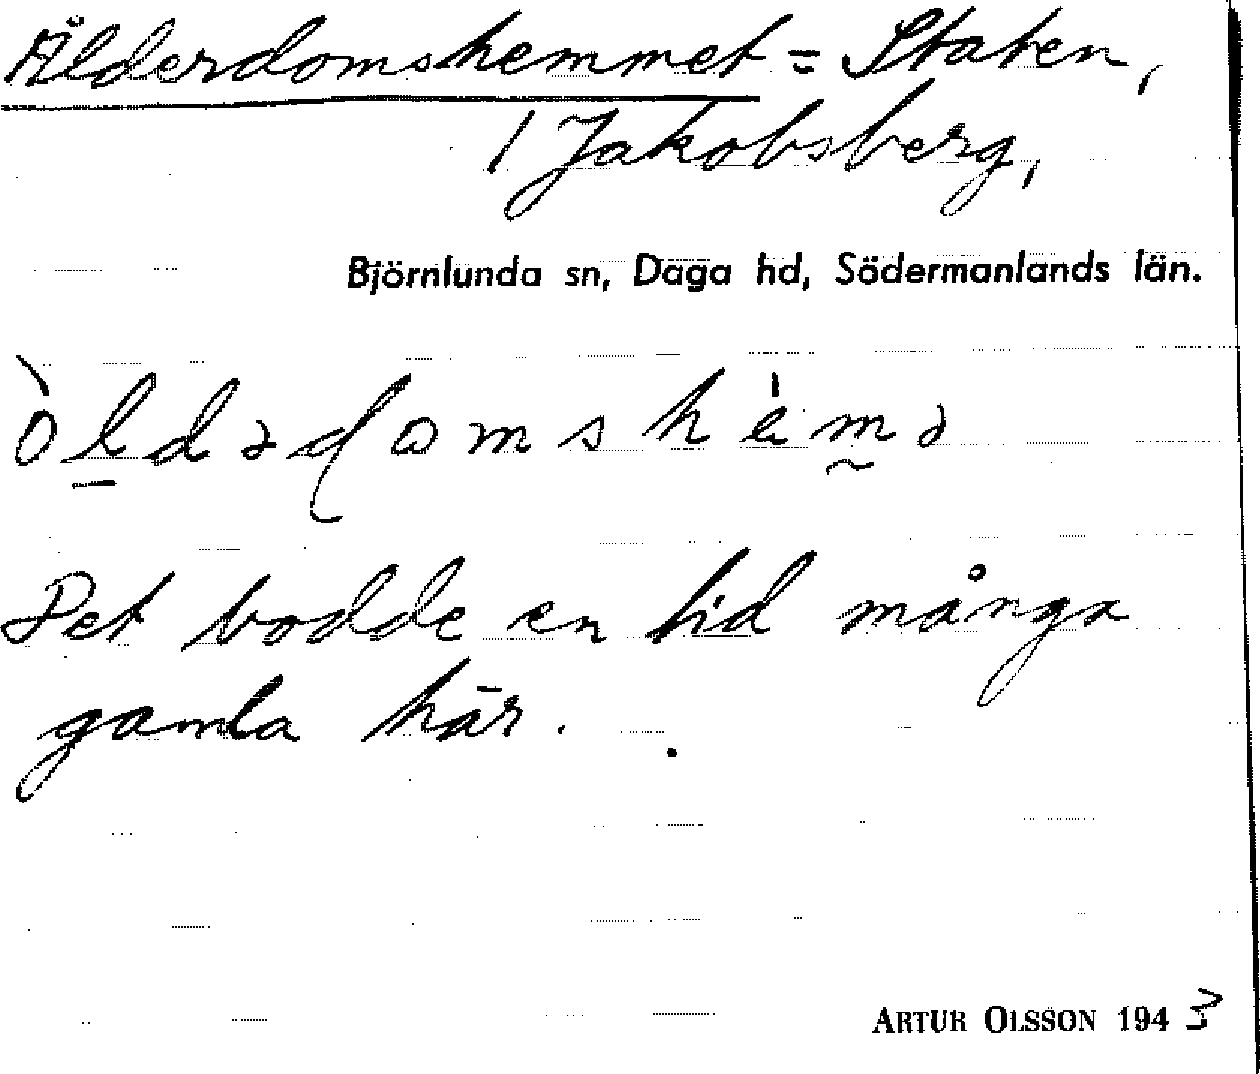 Ålderdomshemmet = Staten,
/ Jakobsberg,
Björnlunda sn, Daga hd, Södermanlands län.
òldədomshèmə
Det bodde en tid många
gamla här.
ARTUR OLSSON 1943